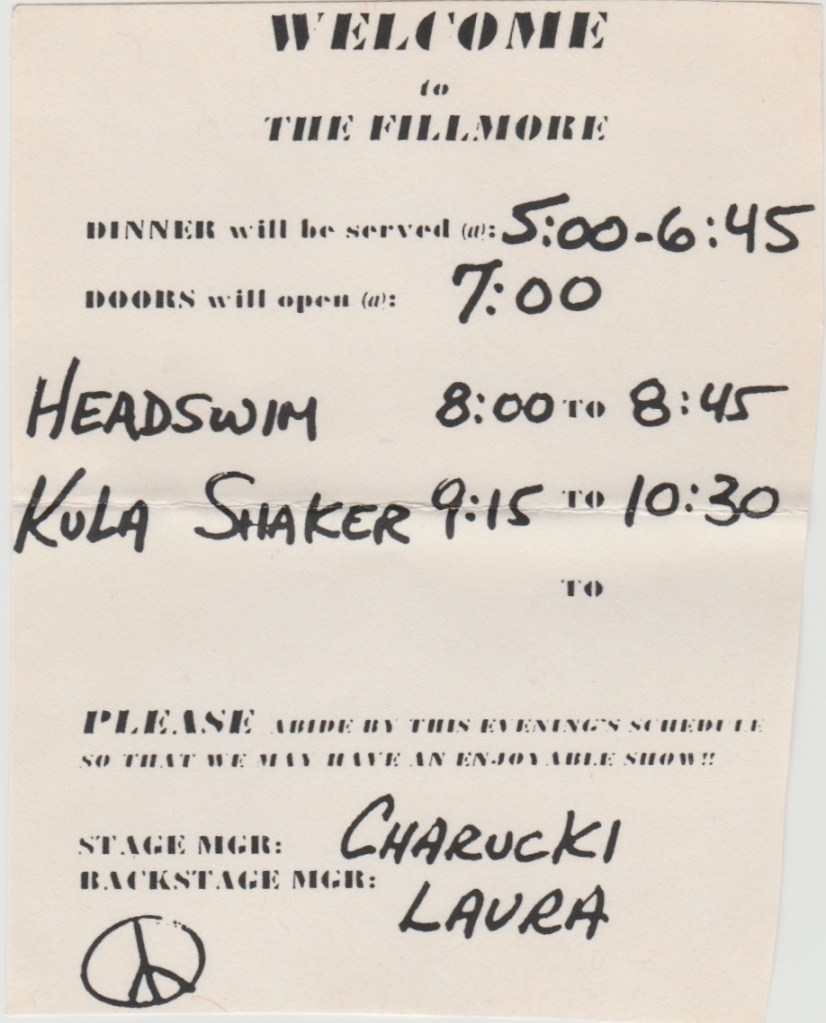 WELCOME
to
THE FILLMORE
DINNER will be served @: 5:00-6:45
DOORS will open @: 7:00
HEADSWIM 8:00 TO 8:45
KULA SHAKER 9:15 TO 10:30
TO
PLEASE ABIDE BY THIS EVENING'S SCHEDULE
SO THAT WE MAY HAVE AN ENJOYABLE SHOW!!
STAGE MGR: CHARUCKI
BACKSTAGE MGR:
LAURA